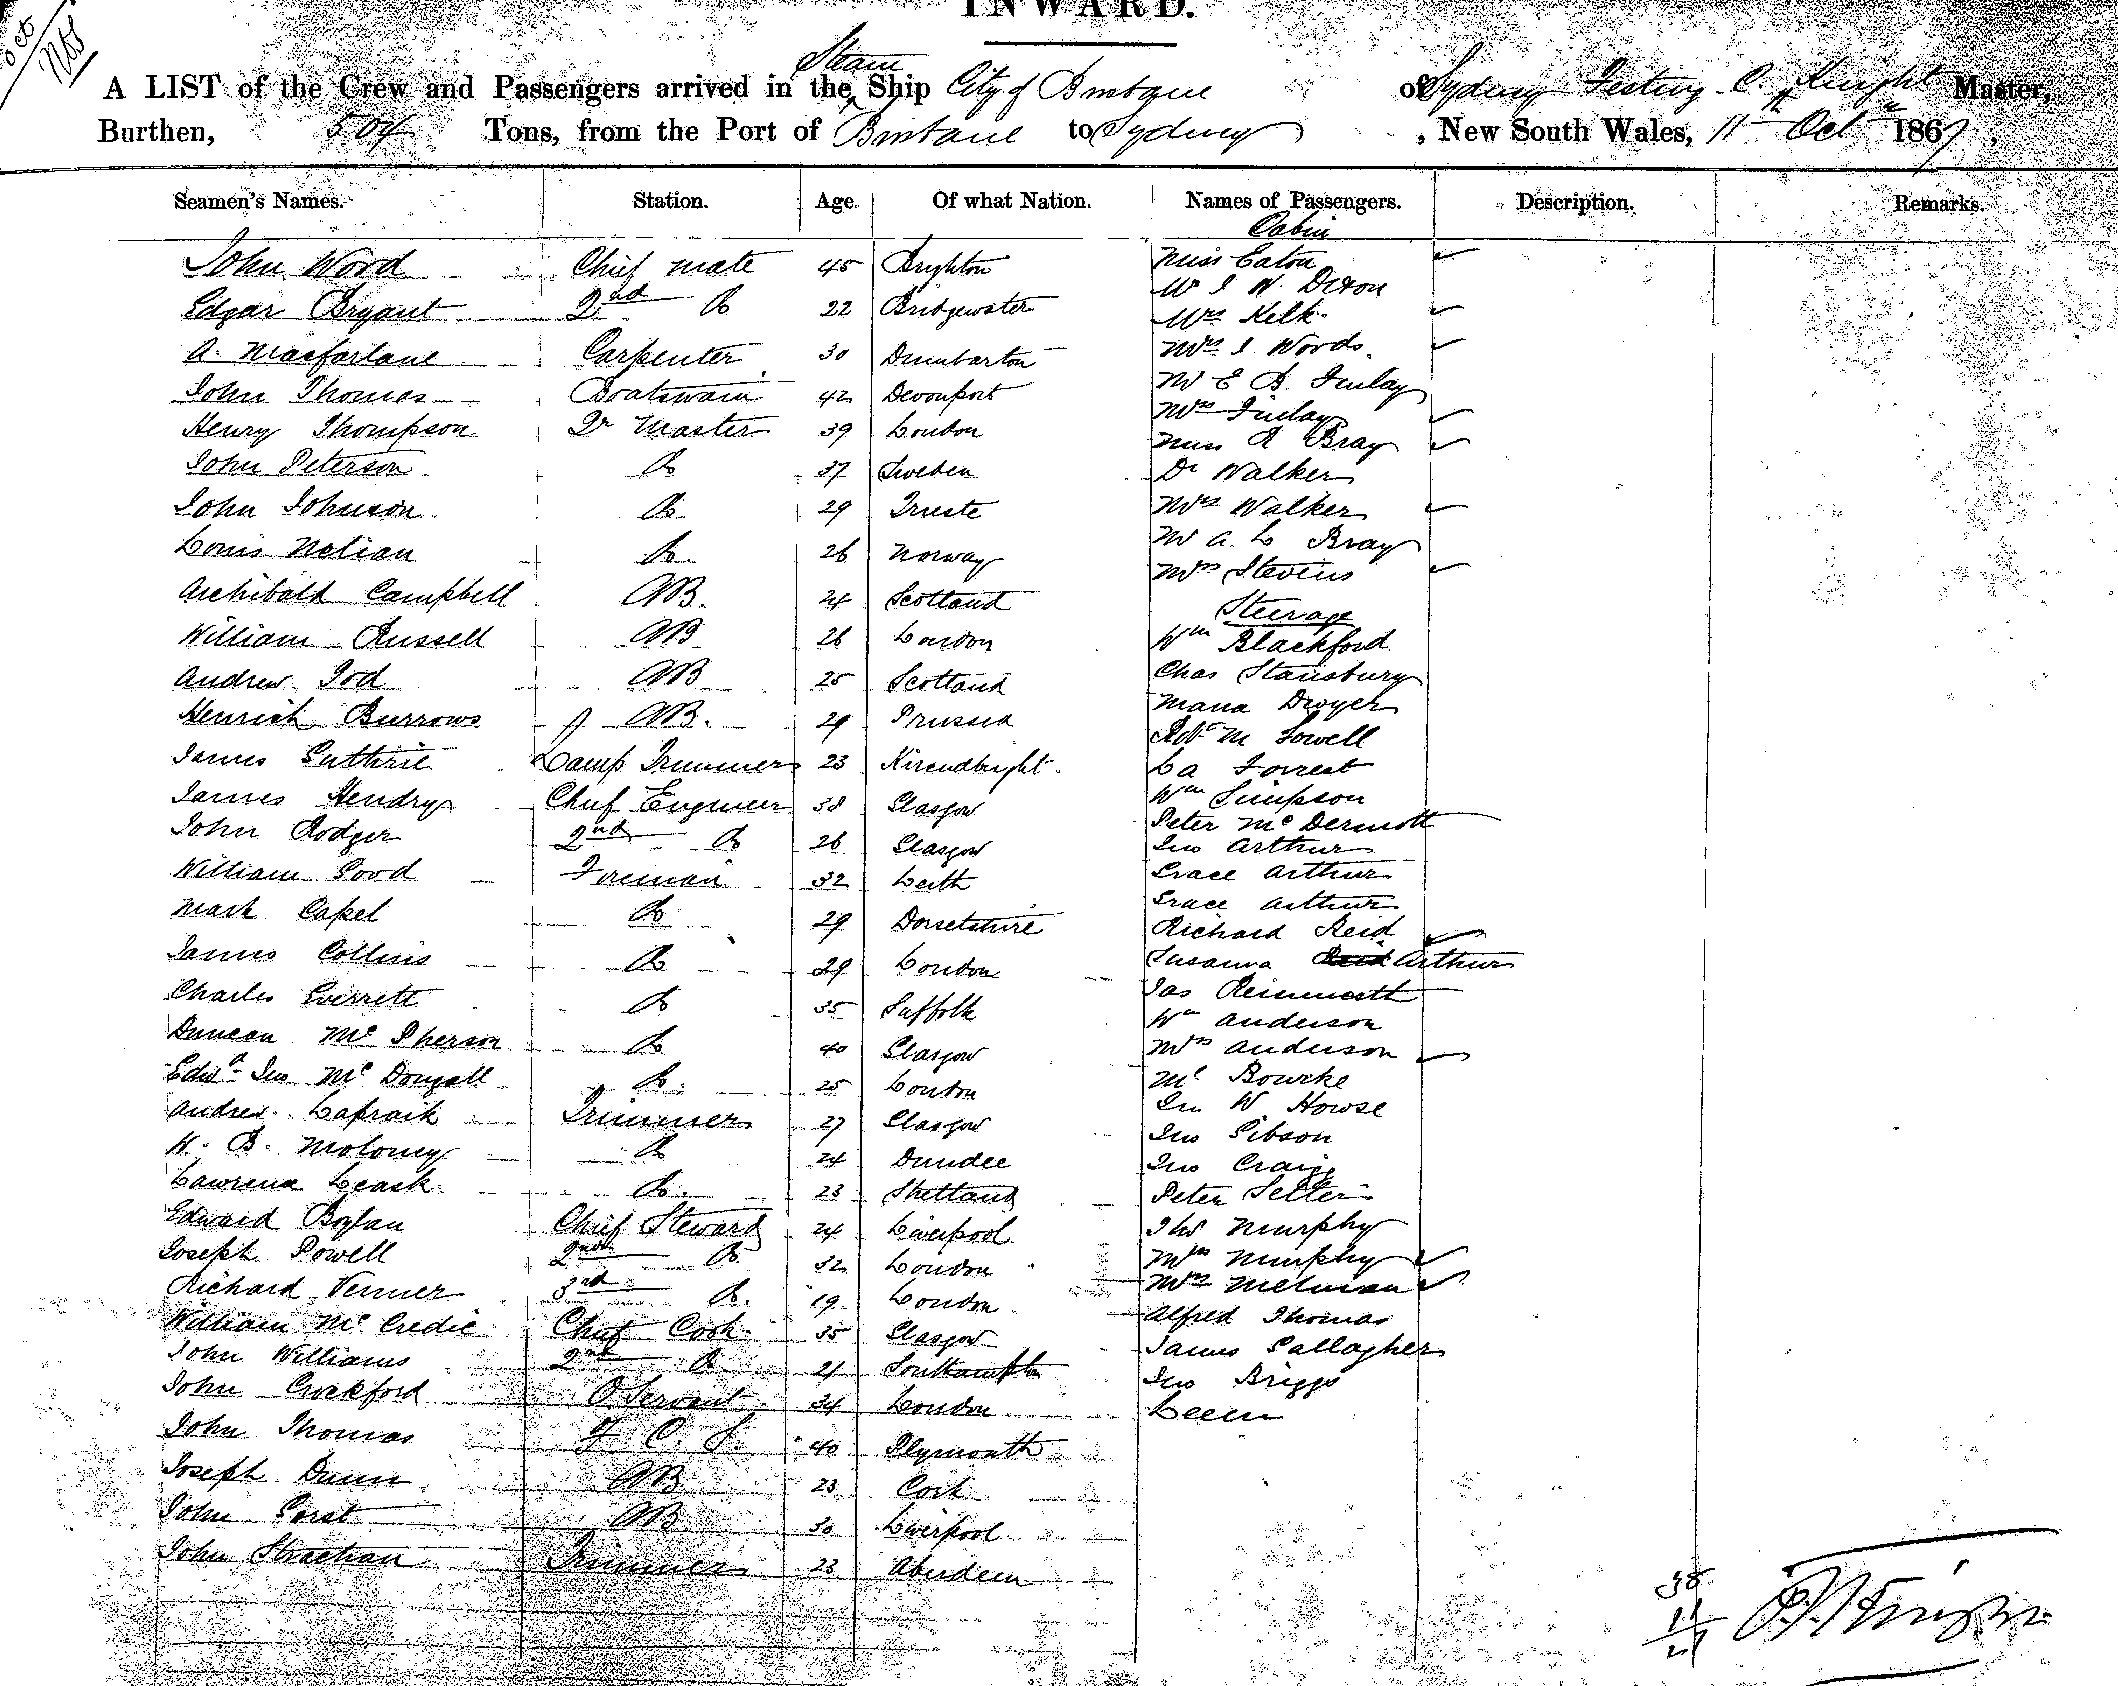 INWARD.
A LIST of the Crew and Passengers arrived in the Steam Ship City of Brisbane of Sydney Testing C. Knight Master,
Burthen, 504 Tons, from the Port of Brisbane to Sydney, New South Wales, 11th Oct 1867.
Seamen's Names. Station. Age. Of what Nation. Names of Passengers. Description. Remarks.
Cabin
John Wood Chief mate 45 Brighton Miss Eaton
Mr J W. Dixon
Edgar Bryant 2nd Do 22 Bridgewater Mrs Kelk
A. Macfarlane Carpenter 30 Dumbarton Mrs J Woods
John Thomas Boatswain 42 Devonport Mr E B. Finlay
Mrs Finlay
Henry Thompson Qr Master 39 London Miss A Bray
John Peterson Do 37 Sweden Dr Walker
John Johnson Do 29 Trieste Mrs Walker
Louis Nelian Do 26 Norway Mr A. L Bray
Mrs Stevens
Archibald Campbell AB. 24 Scotland Steerage
William Russell AB 26 London Wm Blackford
Andrew Tod AB 25 Scotland Chas Stansbury
Maria Dwyer
Henrich Burrows AB. 29 Prussia Robt M Lowell
James Guthrie Lamp Trimmer 23 Kircudbright La Forrest
James Hendry Chief Engineer 38 Glasgow Wm Simpson
Peter McDermott
John Rodger 2nd Do 26 Glasgow Jno Arthur
William Good Fireman 32 Leith Grace Arthur
Grace Arthur
Mark Capel Do 29 Dorsetshire Richard Reid
James Collins Do 29 London Susanna Arthur
Charles Everrett Do 35 Suffolk Jas
Wm Anderson
Duncan McPherson Do 40 Glasgow Mrs Anderson
Edwd Jno McDougall Do 25 London Mc Bourke
Jno W Howse
Andrew Lapraik Trimmer 27 Glasgow Jno Gibson
H. B. Moloney Do 24 Dundee Jno Craig
Lawrence Leask Do 23 Shetland Peter
Edward Boylan Chief Steward 24 Liverpool Thos Murphy
Joseph Powell 2nd Do 32 London Mrs Murphy
Richard Venner 3rd Do 19 London Mrs
William McCredie Chief Cook 35 Glasgow Alfred Thomas
John Williams 2nd Do 21 Southampton James Gallagher
John Crockford O Servant 34 London Jno Briggs
John Thomas F. C. S. 40 Plymouth
Joseph Dunn AB 23 Cork
John Gorst AB 30 Liverpool
John Strachan Trimmer 23 Aberdeen